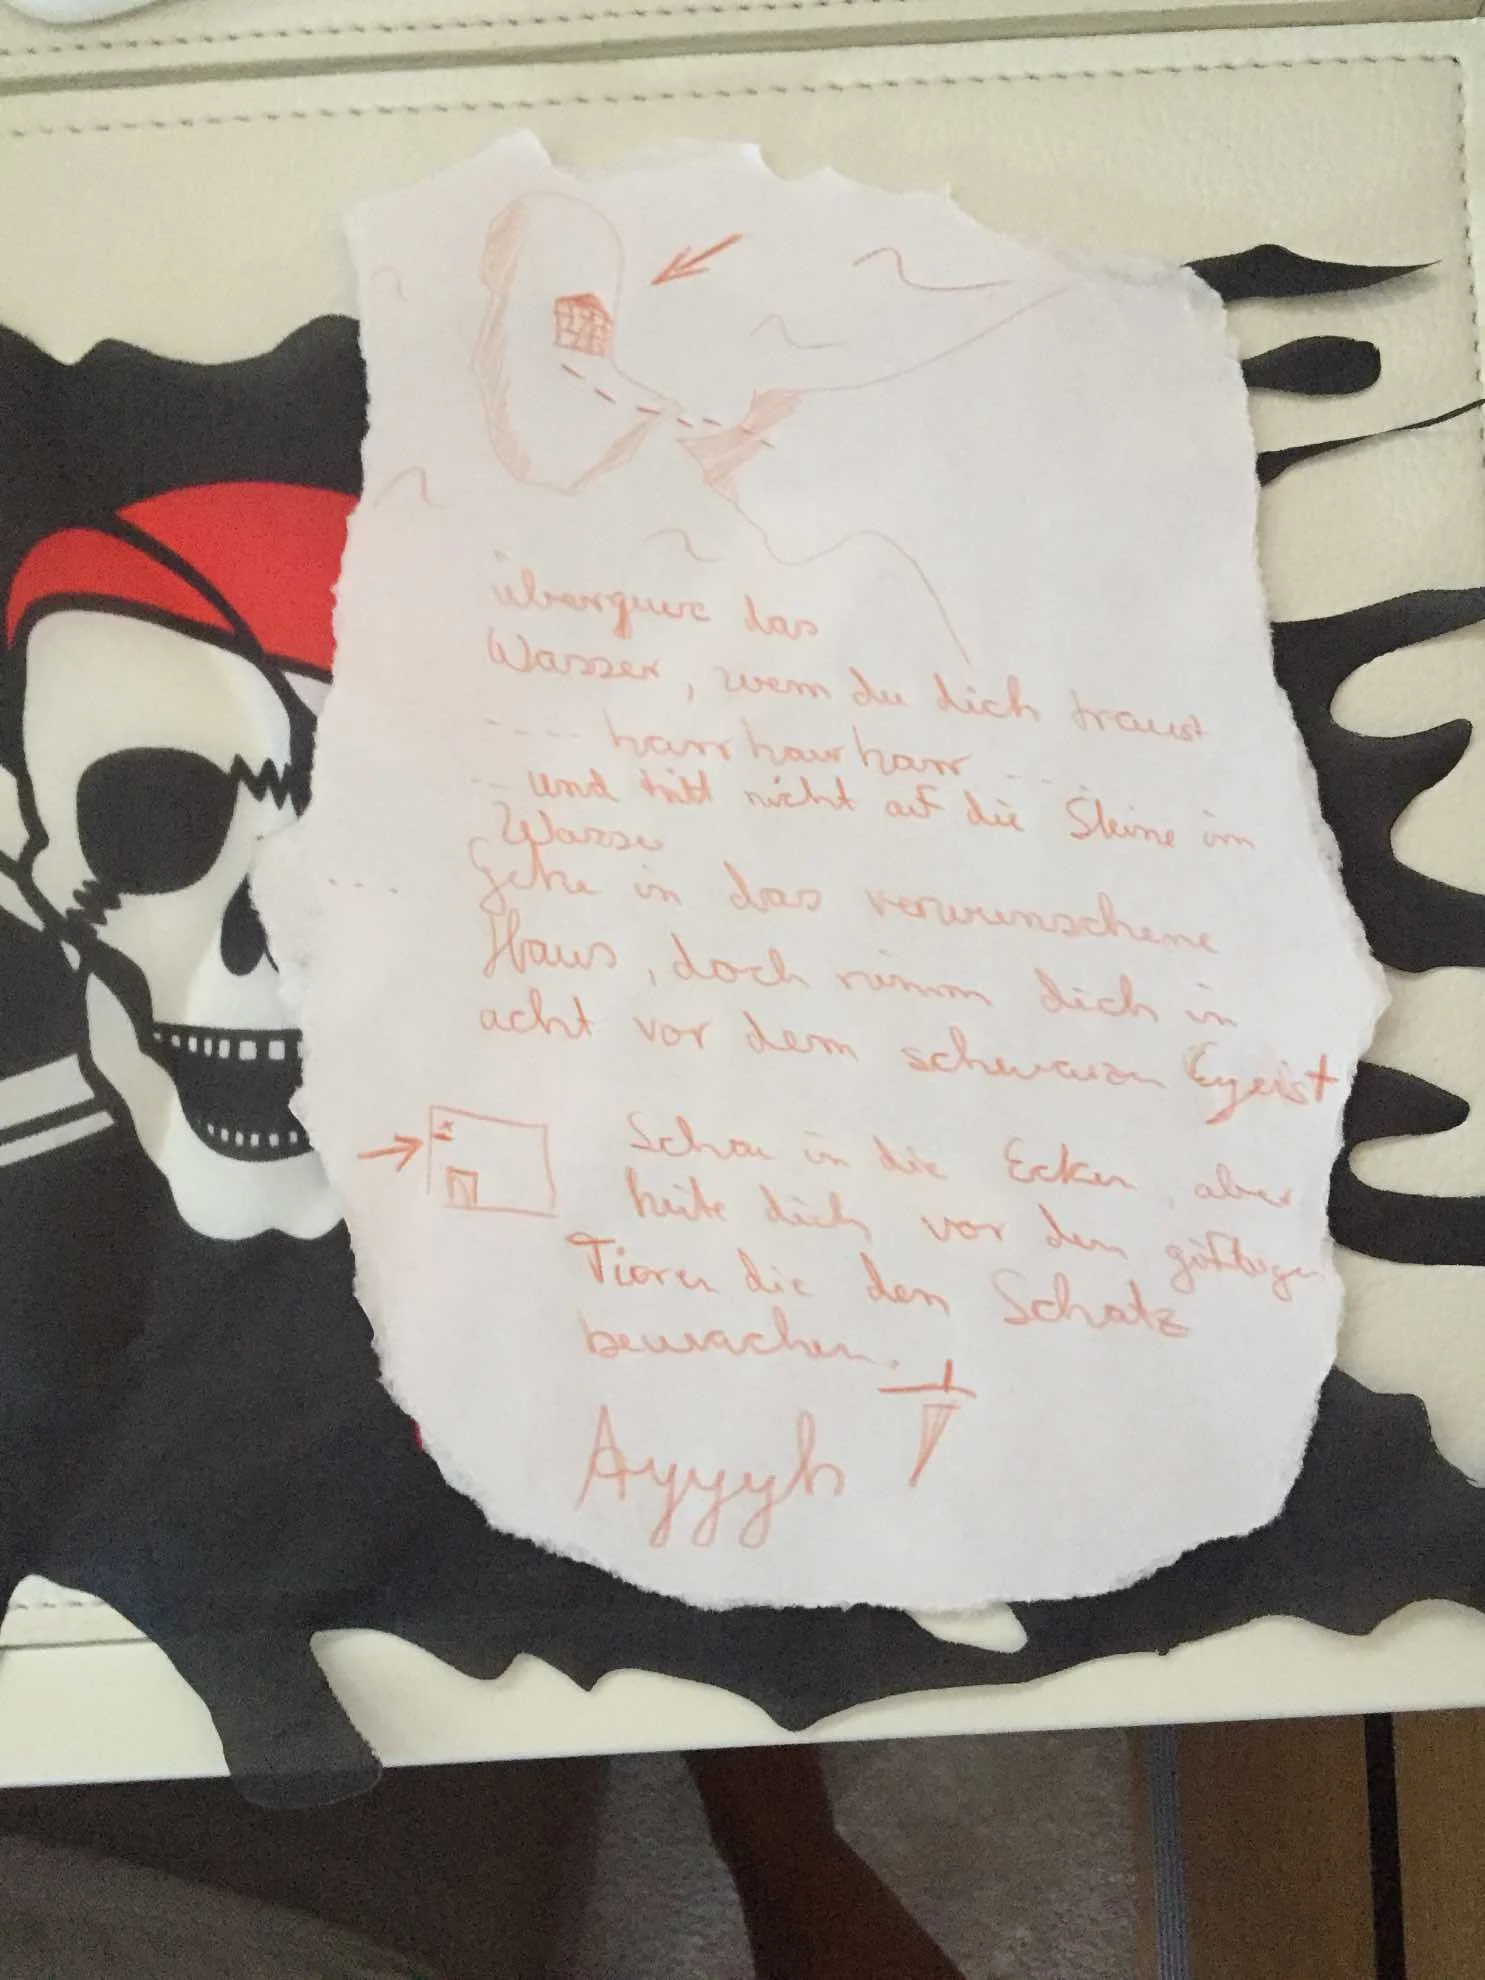 überquere das
Wasser, wenn du dich traust
.... harr harr harr ...
.. und tritt nicht auf die Steine im
Wasser
....
Gehe in das verwunschene
Haus, doch nimm dich in
acht vor dem schwarzen Geist
Schau in die Ecken, aber
hüte dich vor den giftigen
Tieren die den Schatz
bewachen.
Ayyyh